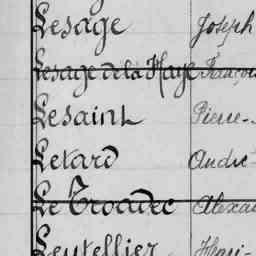 Lesage Joseph
Lesage de la Haye François
Lesaint Pierre-
Letard André-
Le Troadec Alexa
Leutellier Henri-